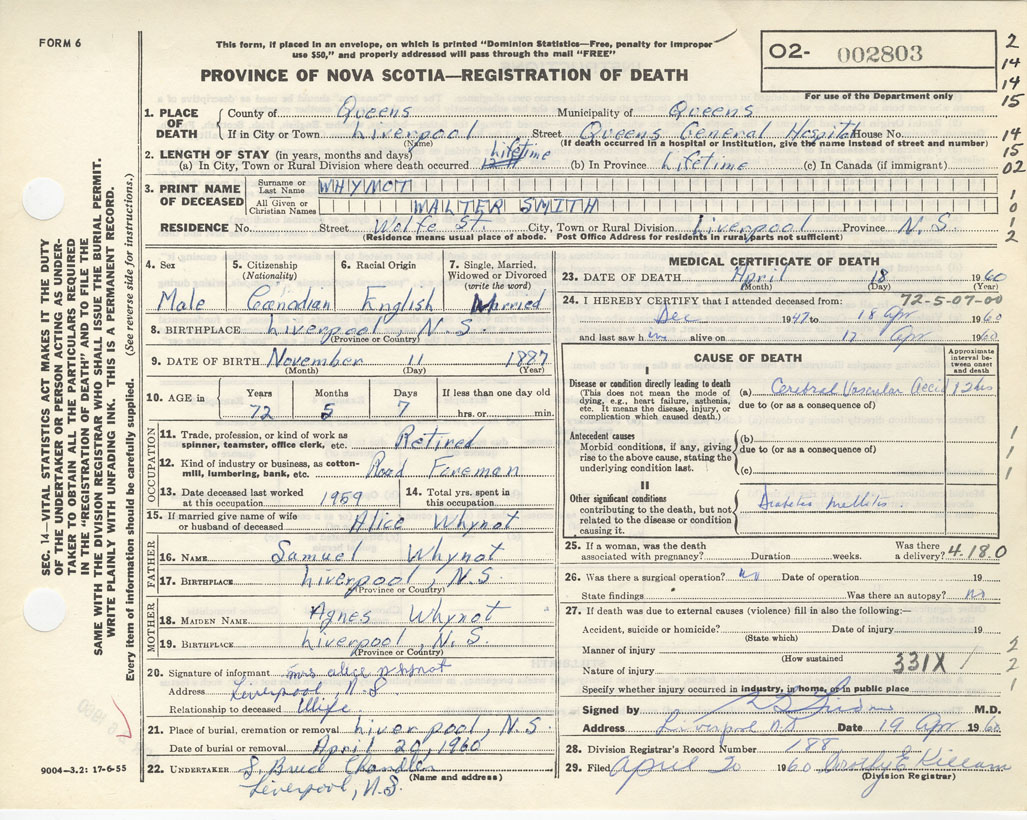 FORM 6
This form, if placed in an envelope, on which is printed "Dominion Statistics—Free, penalty for improper
use $50," and properly addressed will pass through the mail "FREE"
PROVINCE OF NOVA SCOTIA—REGISTRATION OF DEATH
O2- 002803
For use of the Department only
2
14
14
15
14
15
02
1
0
1
2
SEC. 14—VITAL STATISTICS ACT MAKES IT THE DUTY
OF THE UNDERTAKER OR PERSON ACTING AS UNDER-
TAKER TO OBTAIN ALL THE PARTICULARS REQUIRED
IN THE "REGISTRATION OF DEATH" AND FILE THE
SAME WITH THE DIVISION REGISTRAR WHO SHALL ISSUE THE BURIAL PERMIT.
WRITE PLAINLY WITH UNFADING INK. THIS IS A PERMANENT RECORD.
Every item of information should be carefully supplied. (See reverse side for instructions.)
1. PLACE OF DEATH
County of Queens Municipality of Queens
If in City or Town Liverpool Street Queens General Hospital House No.
(Name) (If death occurred in a hospital or institution, give the name instead of street and number)
2. LENGTH OF STAY (in years, months and days)
(a) In City, Town or Rural Division where death occurred Lifetime (b) In Province Lifetime (c) In Canada (if immigrant)
3. PRINT NAME OF DECEASED
Surname or Last Name WHYNOT
All Given or Christian Names WALTER SMITH
RESIDENCE No. Street Wolfe St. City, Town or Rural Division Liverpool Province N.S.
(Residence means usual place of abode. Post Office Address for residents in rural parts not sufficient)
4. Sex 5. Citizenship (Nationality) 6. Racial Origin 7. Single, Married, Widowed or Divorced (write the word)
Male Canadian English Married
8. BIRTHPLACE Liverpool, N.S.
(Province or Country)
9. DATE OF BIRTH November 11 1887
(Month) (Day) (Year)
10. AGE in Years Months Days If less than one day old
72 5 7 hrs. or min.
OCCUPATION
11. Trade, profession, or kind of work as spinner, teamster, office clerk, etc. Retired
12. Kind of industry or business, as cotton-mill, lumbering, bank, etc. Road Foreman
13. Date deceased last worked at this occupation 1959 14. Total yrs. spent in this occupation
15. If married give name of wife or husband of deceased Alice Whynot
FATHER
16. NAME Samuel Whynot
17. BIRTHPLACE Liverpool, N.S.
(Province or Country)
MOTHER
18. MAIDEN NAME Agnes Whynot
19. BIRTHPLACE Liverpool, N.S.
(Province or Country)
20. Signature of informant Mrs alice whynot
Address Liverpool, N.S
Relationship to deceased Wife
21. Place of burial, cremation or removal Liverpool, N.S
Date of burial or removal April 20, 1960
22. UNDERTAKER S. Bruce Chandler
(Name and address)
Liverpool, N.S.
9004—3.2: 17-6-55
MEDICAL CERTIFICATE OF DEATH
23. DATE OF DEATH April 18 1960
(Month) (Day)
24. I HEREBY CERTIFY that I attended deceased from: 72-5-07-00
Dec 1947 to 18 apr 1960
and last saw him alive on 17 Apr 1960
CAUSE OF DEATH
Approximate interval between onset and death
I
Disease or condition directly leading to death
(This does not mean the mode of dying, e.g., heart failure, asthenia, etc. It means the disease, injury, or complication which caused death.)
(a) Cerebral Vascular Accid 12 hrs
due to (or as a consequence of)
Antecedent causes
Morbid conditions, if any, giving rise to the above cause, stating the underlying condition last.
(b)
due to (or as a consequence of)
(c)
1
1
1
II
Other significant conditions
contributing to the death, but not related to the disease or condition causing it.
Diabetes mellitis
25. If a woman, was the death associated with pregnancy? Duration weeks. Was there a delivery? 4.18.0
26. Was there a surgical operation? no Date of operation 19
State findings Was there an autopsy? no
27. If death was due to external causes (violence) fill in also the following:—
Accident, suicide or homicide? Date of injury 19
(State which)
Manner of injury
(How sustained
Nature of injury 331X 1
Specify whether injury occurred in industry, in home, or in public place
2
2
1
Signed by M.D.
Address Liverpool N.S Date 19 apr 1960
28. Division Registrar's Record Number 188
29. Filed April 20 1960 Dorothy E Killam
(Division Registrar)